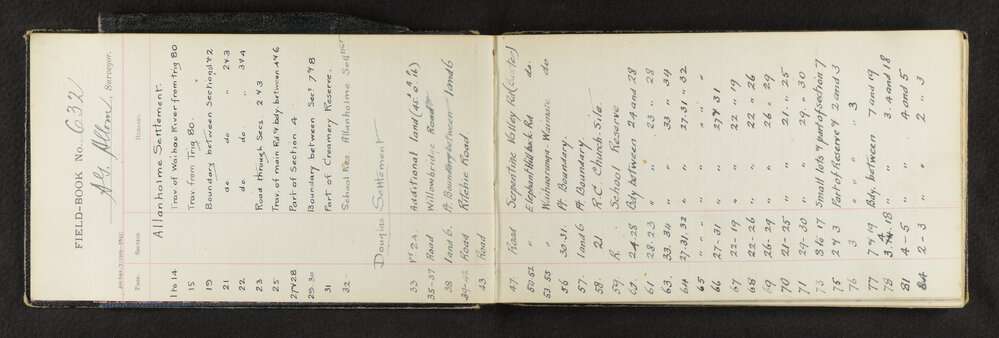 FIELD-BOOK No. 632
A.G. Allom, Surveyor.
PAGE. SECTION. REMARKS.
Allanholme Settlement.
1 to 14 Trav of Waihao River from Trig 80
15 Trav from Trig 80.
19 Boundary between Sections 1 & 2
21 do do " 2 & 3
22 do do 3 & 4
23 Road through Secs. 2 & 3
25 Trav. of main Rd & bdy. between 4 & 6
27 & 28 Part of Section 4.
29-30 Boundary between Secs 7 & 8
31 Part of Creamery Reserve.
32 School Res Allanholme Settmt
Douglas Settlement
33 Pt 24 Additional land
35-37 Road Willowbridge Road
38 1 and 6. Pt Boundary between 1 and 6
39-42 Road Ritchie Road.
43 Road
47. Road Serpentine Valley Rd
50-52 " Elephant Hill back Rd do.
53-55 " Waihaorunga - Waimate do
56 30-31. Pt Boundary.
57. 1 and 6 Pt Boundary
58. 21 R C Church Site.
59. R. School Reserve
60. 24-28 Bdy between 24 and 28
61 28-23 " 23 " 28
63. 33. 34 " 33 " 34
64 27-31. 32 " 27-31 " 32
65 " " " "
66 27-31 " 27 & 31
67 22-19 " 22 " 19
68 22-26 " 22 " 26
69 26-29 " 26 " 29
70 21-25 " 21 " 25
71 29-30 " 29. " 30
73 3 16 17 Small lots & part of section 7
75 2 & 3 Part of Reserve & 2 and 3
76 3 " " 3
77 7 & 19 Bdy. between 7 and 19
78 3. 4. 18 " 3. 4 and 18
81 4-5 " 4 and 5
84 2-3 " 2 " 3